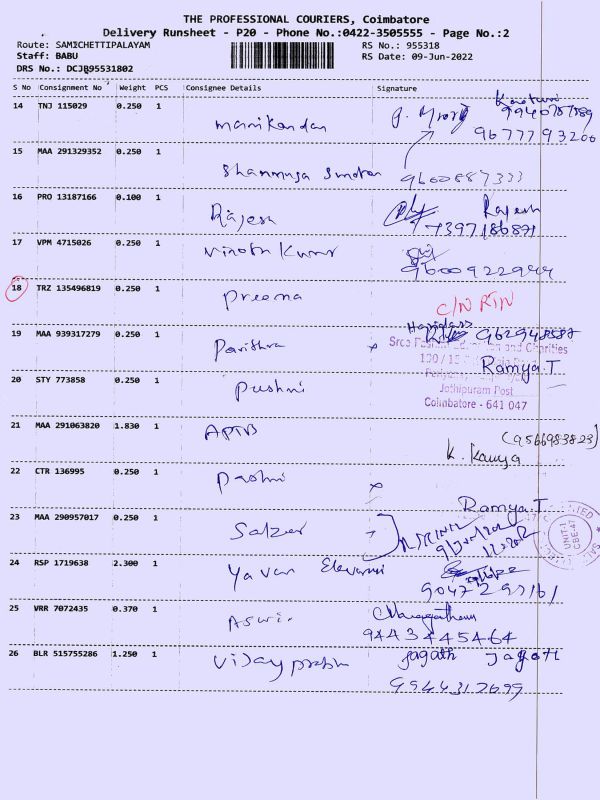 THE PROFESSIONAL COURIERS, Coimbatore
Delivery Runsheet - P20 - Phone No.:0422-3505555 - Page No.:2
Route: SAMICHETTIPALAYAM
Staff: BABU
DRS No.: DCJB95531802
RS No.: 955318
RS Date: 09-Jun-2022
S No Consignment No Weight PCS Consignee Details Signature
14 TNJ 115029 0.250 1 manikandan
9677793200
15 MAA 291329352 0.250 1 shanmuga
9600887333
16 PRO 13187166 0.100 1 Rajesh Rajesh
7397186871
17 VPM 4715026 0.250 1 vinoth kumar
9600922944
18 TRZ 135496819 0.250 1 preema C/N RTN
19 MAA 939317279 0.250 1 pavithra x
and Charities
Ramya T
20 STY 773858 0.250 1 pushni
Jothipuram Post
Coimbatore - 641 047
21 MAA 291063820 1.830 1 APTB K. Kavya (9566983823)
22 CTR 136995 0.250 1 x
Ramya T
23 MAA 290957017 0.250 1 Salzer
UNIT-1
CBE-47
24 RSP 1719638 2.300 1 Yavan
25 VRR 7072435 0.370 1
9443445464
26 BLR 515755286 1.250 1 vijay prabhu Jagath
9944312699